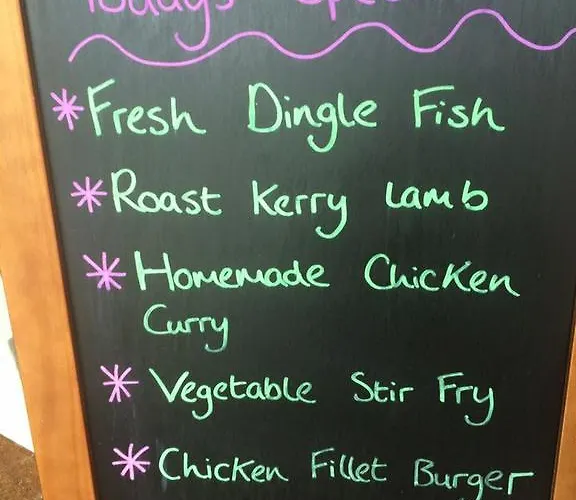 Todays
* Fresh Dingle Fish
* Roast Kerry Lamb
* Homemade Chicken
Curry
* Vegetable Stir Fry
* Chicken Fillet Burger